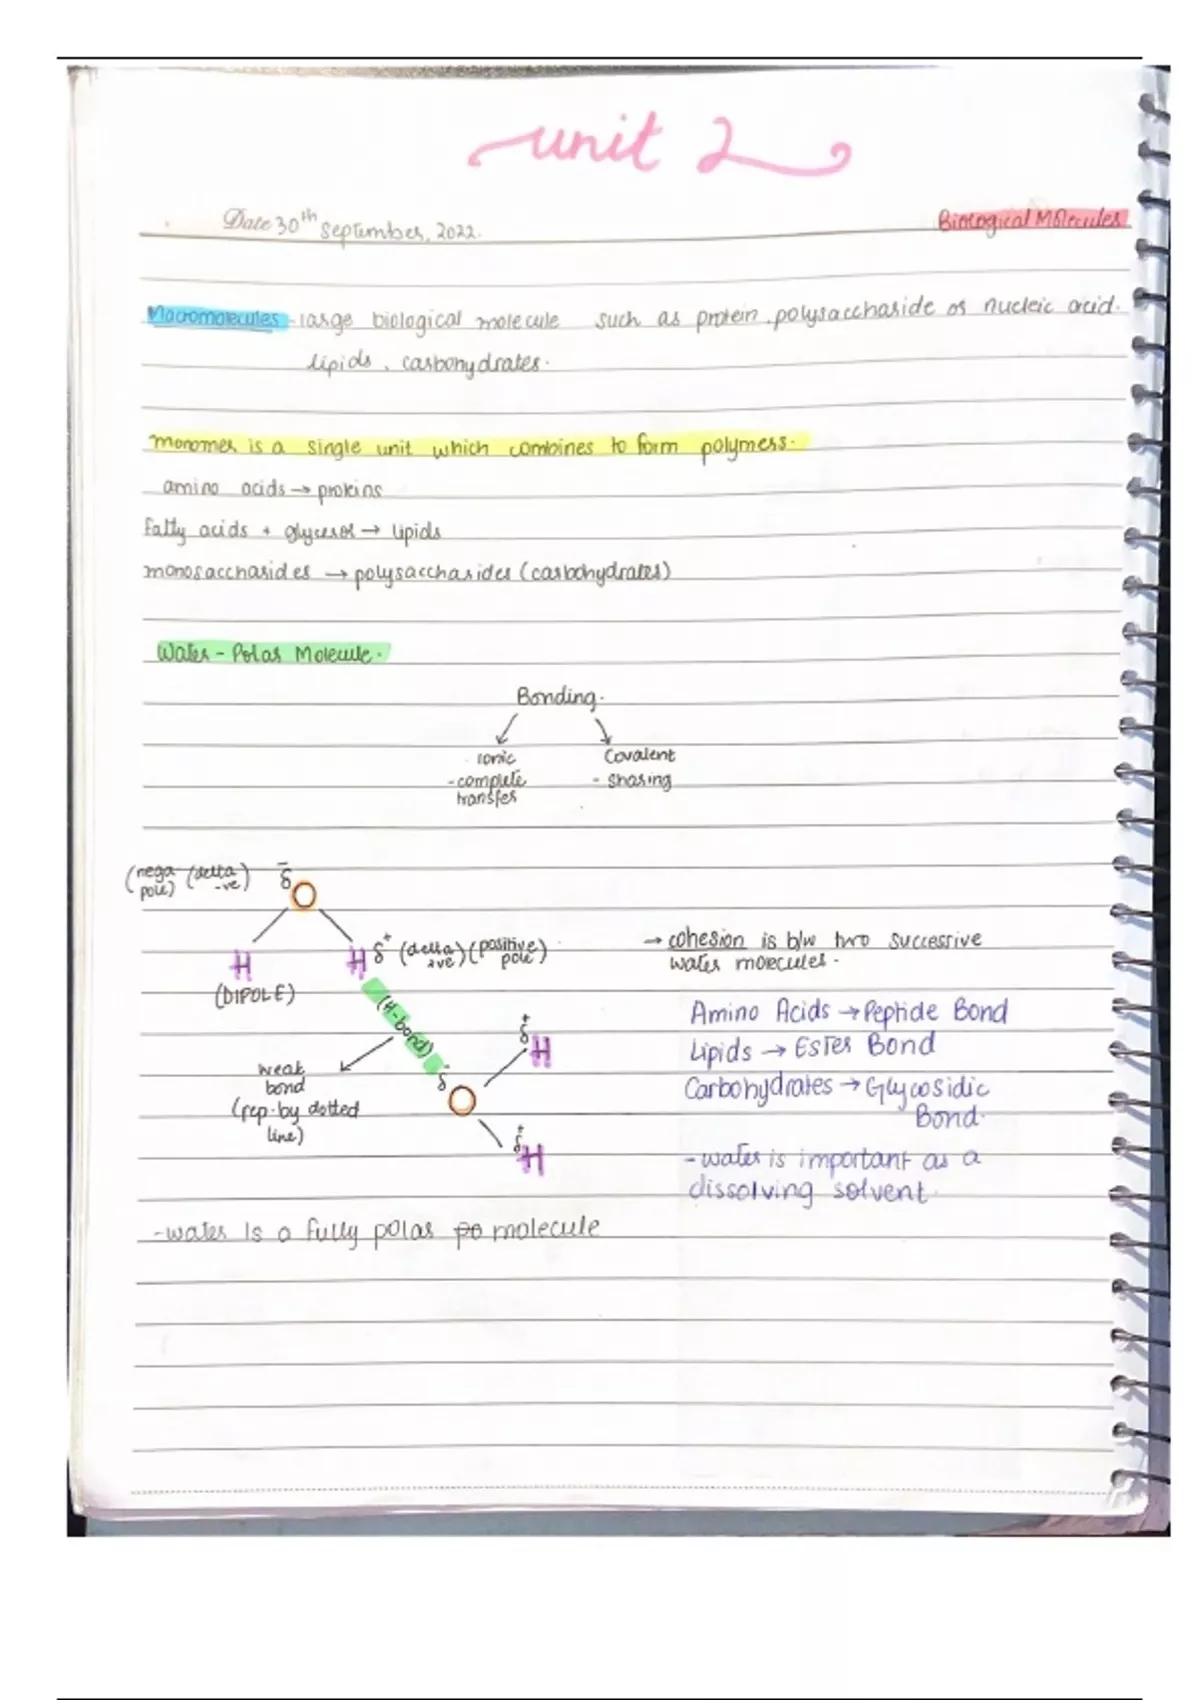 unit 2
Date 30th September, 2022.
Biological Molecules
Macromolecules - large biological molecule such as protein, polysaccharide or nucleic acid.
lipids, carbohydrates.
Monomer is a single unit which combines to form polymers.
amino acids → proteins
Fatty acids + glycerol → lipids
monosaccharides → polysaccharides (carbohydrates)
Water - Polar Molecule.
Bonding.
Ionic
- complete
transfer
Covalent
- sharing
(nega pole) (delta -ve) δ-
O
H
H δ+ (delta +ve) (positive pole)
(DIPOLE)
(H-bond)
weak
bond
(rep. by dotted
line)
δ-
O
δ+
H
δ+
H
→ cohesion is b/w two successive
water molecules.
Amino Acids → Peptide Bond
Lipids → Ester Bond
Carbohydrates → Glycosidic
Bond.
- water is important as a
dissolving solvent.
- water is a fully polar po molecule